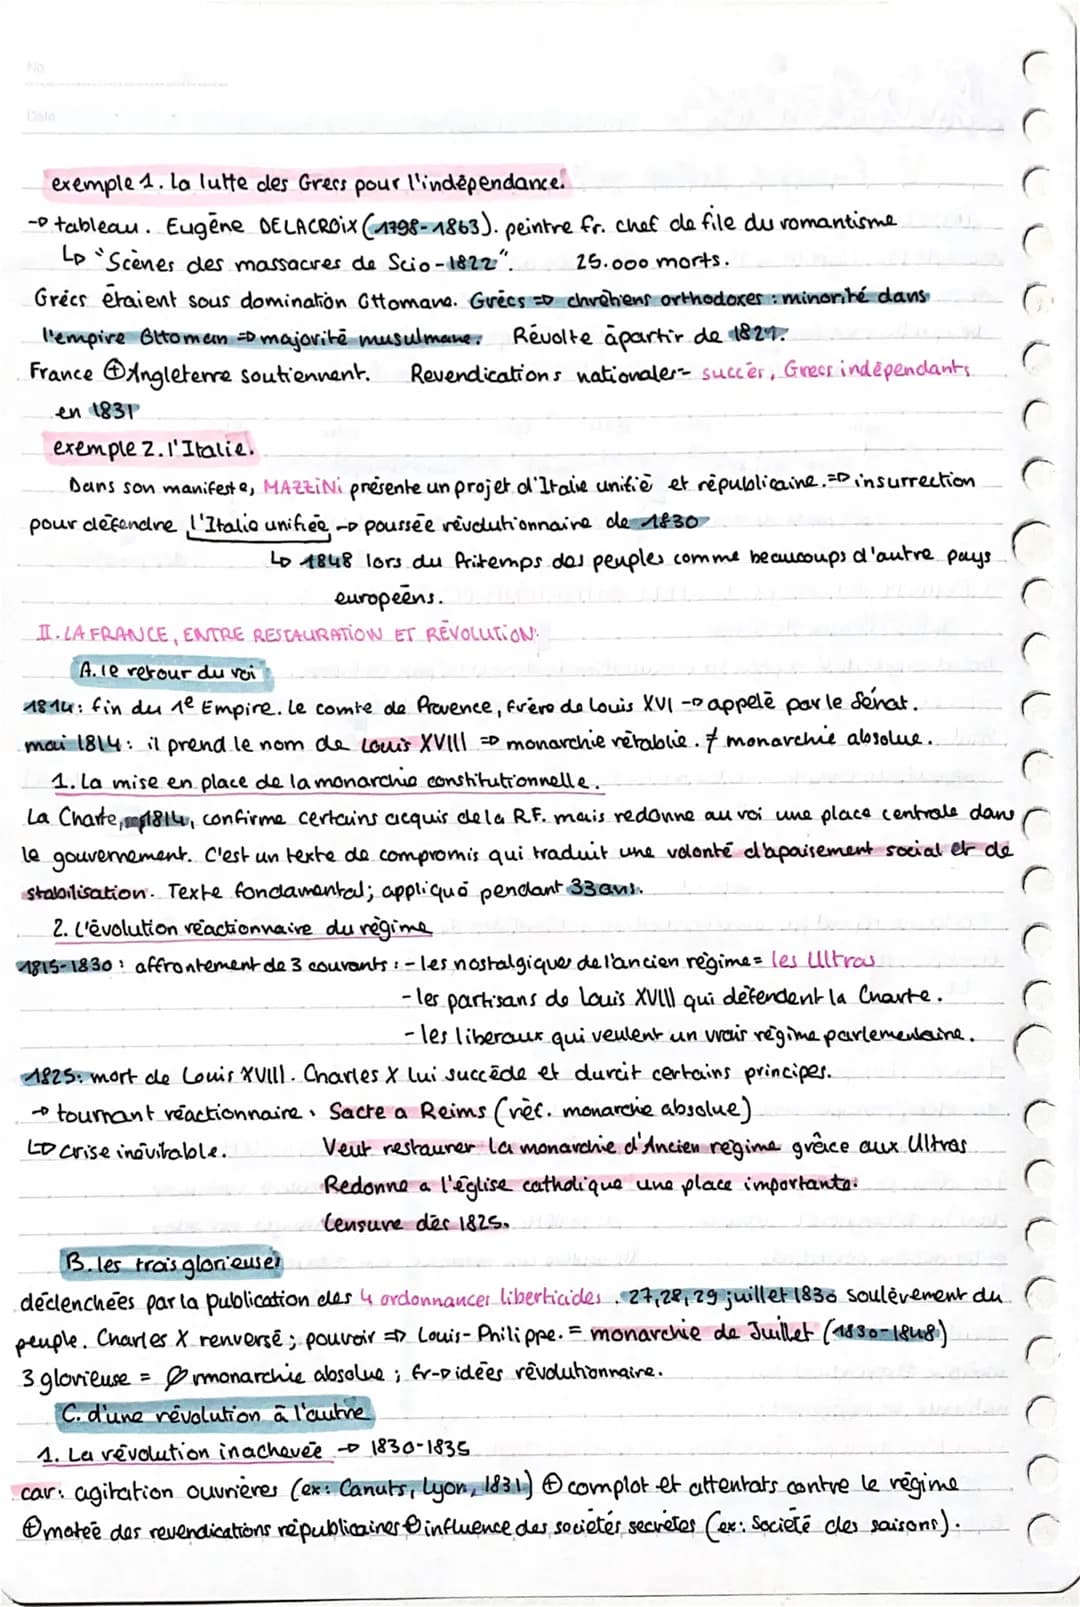 No
Date
exemple 1. La lutte des Grecs pour l'indépendance.
→ tableau. Eugène DELACROIX (1798-1863). peintre fr. chef de file du romantisme
↳ "Scènes des massacres de Scio-1822". 25.000 morts.
Grécs étaient sous domination Ottomane. Grécs ⇒ chrétiens orthodoxes : minorité dans
l'empire Ottoman ⇒ majorité musulmane. Révolte àpartir de 1821.
France ⊕ Angleterre soutiennent. Revendications nationales- succès, Grecs indépendants
en 1831
exemple 2. l'Italie.
Dans son manifeste, MAZZINI présente un projet d'Italie unifié et républicaine. ⇒ insurrection
pour défendre l'Italie unifiée → poussée révolutionnaire de 1830
↳ 1848 lors du Pritemps des peuples comme beaucoups d'autre pays
européens.
II. LA FRANCE, ENTRE RESTAURATION ET RÉVOLUTION.
A. le retour du roi
1814: fin du 1e Empire. Le comte de Provence, frère de Louis XVI → appelé par le Sénat.
mai 1814: il prend le nom de Louis XVIII ⇒ monarchie rétablie. ≠ monarchie absolue.
1. La mise en place de la monarchie constitutionnelle.
La Charte, 1814, confirme certains acquis de la R.F. mais redonne au roi une place centrale dans
le gouvernement. C'est un texte de compromis qui traduit une volonté d'apaisement social et de
stabilisation. Texte fondamental; appliqué pendant 33 ans.
2. L'évolution réactionnaire du régime
1815-1830 : affrontement de 3 courants : - les nostalgiques de l'ancien régime = les Ultras
- les partisans de Louis XVIII qui défendent la Charte.
- les liberaux qui veulent un vrais régime parlementaire.
1825: mort de Louis XVIII. Charles X lui succède et durcit certains principes.
→ tournant réactionnaire : Sacre a Reims (réf. monarchie absolue)
↳ crise inévitable. Veut restaurer la monarchie d'Ancien régime grâce aux Ultras
Redonne a l'église catholique une place importante.
Censure dès 1825.
B. les trois glorieuses
déclenchées par la publication des 4 ordonnances liberticides. 27,28,29 juillet 1830 soulèvement du
peuple. Charles X renversé ; pouvoir ⇒ Louis-Philippe. = monarchie de Juillet (1830-1848)
3 glorieuse = Ø monarchie absolue ; fr→ idées révolutionnaire.
C. d'une révolution à l'autre
1. La révolution inachevée → 1830-1835
car: agitation ouvrières (ex: Canuts, Lyon, 1831) ⊕ complot et attentats contre le régime
⊕ matée des revendications républicaines ⊕ influence des sociétés secrètes (ex: Société des saisons).